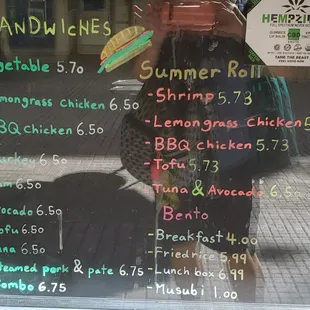 ANDWICHES
egetable 5.70
emongrass Chicken 6.50
BQ chicken 6.50
urkey 6.50
am 6.50
vocado 6.50
ofu 6.50
una 6.50
teamed pork & pate 6.75
ombo 6.75
Summer Roll
- Shrimp 5.73
- Lemongrass Chicken 5
- BBQ chicken 5.73
- Tofu 5.73
Tuna & Avocado 6.50
Bento
- Breakfast 4.00
- Fried rice 5.99
- Lunch box 6.99
- Musubi 1.00
HEMPZIL
CBD
TANK THE BEAST